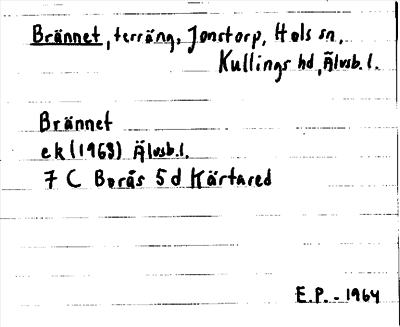 Brännet, terräng, Jonstorp, Hols sn,
Kullings hd, Älvsb. l.
Brännet
ek (1968) Älvsb. l.
7 C Borås 5 d Kärtared
E.P. - 1964